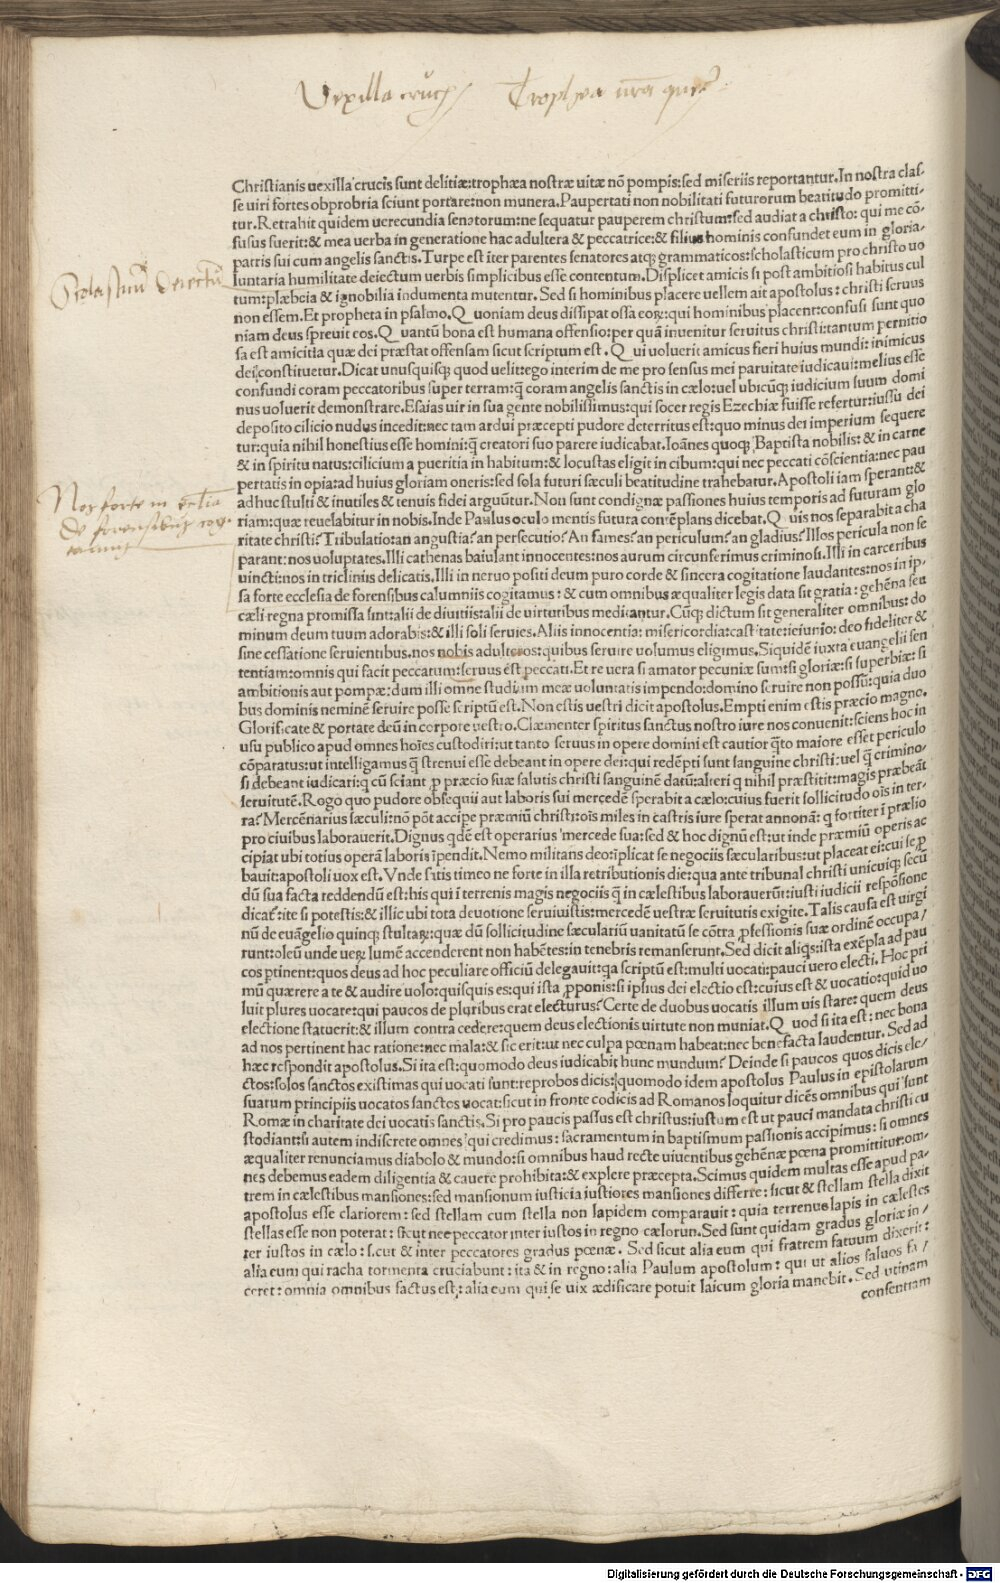 Vexilla crucis Trophea
Christianis uexilla crucis sunt delitiæ:trophæa nostræ uitæ nõ pompis:sed miseriis reportantur.In nostra clas-
se uiri fortes obprobria sciunt portare:non munera.Paupertati non nobilitati futurorum beatitudo promitti-
tur.Retrahit quidem uerecundia senatorum:ne sequatur pauperem christum:sed audiat a christo: qui me cõ-
fusus fuerit:& mea uerba in generatione hac adultera & peccatrice:& filius hominis confundet eum in gloria-
patris sui cum angelis sanctis.Turpe est iter parentes senatores atqꝫ grammaticos:scholasticum pro christo uo
Scolasticum deiectum
luntaria humilitate deiectum uerbis simplicibus esse contentum.Displicet amicis si post ambitiosi habitus cul
tum:plæbeia & ignobilia indumenta mutentur. Sed si hominibus placere uellem ait apostolus: christi seruus
non essem.Et propheta in psalmo.Quoniam deus dissipat ossa eoꝝ:qui hominibus placent:confusi sunt quo
niam deus spreuit eos.Quantũ bona est humana offensio:per quã inuenitur seruitus christi:tantum pernitio
sa est amicitia quæ dei præstat offensam sicut scriptum est.Qui uoluerit amicus fieri huius mundi: inimicus
dei constituetur.Dicat unusquisqꝫ quod uelit:ego interim de me pro sensus mei paruitate iudicaui:melius esse
confundi coram peccatoribus super terram:q̃ coram angelis sanctis in cælo:uel ubicũqꝫ iudicium suum domi
nus uoluerit demonstrare.Esaias uir in sua gente nobilissimus:qui socer regis Ezechiæ fuisse refertur:iussu dei
deposito cilicio nudus incedit:nec tam ardui præcepti pudore deterritus est:quo minus dei imperium sequere
tur:quia nihil honestius esse homini:q̃ creatori suo parere iudicabat.Ioãnes quoqꝫ Baptista nobilis: & in carne
& in spiritu natus:cilicium a pueritia in habitum:& locustas eligit in cibum:qui nec peccati cõscientia:nec pau
pertatis in opia:ad huius gloriam oneris:sed sola futuri sæculi beatitudine trahebatur.Apostoli iam sperant:&
Nos forte in
ad huc stulti & inutiles & tenuis fidei arguũtur.Non sunt condignæ passiones huius temporis ad futuram glo
riam:quæ reuelabitur in nobis.Inde Paulus oculo mentis futura contẽplans dicebat.Quis nos separabit a cha
de forensibus
ritate christi?Tribulatio:an angustia?an persecutio?An fames?an periculum?an gladius?Illos pericula non se
parant:nos uoluptates.Illi cathenas baiulant innocentes:nos aurum circunferimus criminosi.Illi in carceribus
uincti:nos in tricliniis delicatis.Illi in neruo positi deum puro corde & sincera cogitatione laudantes:nos in ip-
sa forte ecclesia de forensibus calumniis cogitamus: & cum omnibus æqualiter legis data sit gratia: gehẽna seu
cæli regna promissa sint:alii de diuitiis:alii de uirtutibus meditantur.Cũqꝫ dictum sit generaliter omnibus: do
minum deum tuum adorabis:& illi soli seruies.Aliis innocentia: misericordia:castitate:ieiunio: deo fideliter &
sine cessatione seruientibus.nos nobis adulteros:quibus seruire uolumus eligimus.Siquidẽ iuxta euangelii sen
tentiam:omnis qui facit peccatum:seruus est peccati.Et re uera si amator pecuniæ sum:si gloriæ:si superbiæ: si
ambitionis aut pompæ:dum illi omne studium meæ uoluntatis impendo:domino seruire non possũ:quia duo
bus dominis neminẽ seruire posse scriptũ est.Non estis uestri dicit apostolus.Empti enim estis præcio magno.
Glorificate & portate deũ in corpore uestro.Clæmenter spiritus sanctus nostro iure nos conuenit:sciens hoc in
usu publico apud omnes hoĩes custodiri:ut tanto seruus in opere domini est cautior q̃to maiore esset periculo
cõparatus:ut intelligamus q̃ strenui esse debeant in opere dei:qui redẽpti sunt sanguine christi:uel q̃ crimino-
si debeant iudicari:q cũ sciant ꝓ præcio suæ salutis christi sanguinẽ datũ:alteri q nihil præstitit:magis præbeãt
seruitutẽ.Rogo quo pudore obsequii aut laboris sui mercedẽ sperabit a cælo:cuius fuerit sollicitudo oĩs in ter-
ra?Mercẽnarius sæculi:nõ põt accipe præmiũ christi:oĩs miles in castris iure sperat annonã: q fortiter ĩ prælio
pro ciuibus laborauerit.Dignus qdẽ est operarius mercede sua:sed & hoc dignũ est:ut inde præmiũ operis ac
cipiat ubi totius operã laboris ĩpendit.Nemo militans deo:ĩplicat se negociis sæcularibus:ut placeat ei:cui se ꝓ
bauit:apostoli uox est.Vnde satis timeo ne forte in illa retributionis die:qua ante tribunal christi unicuiqꝫ secũ
dũ sua facta reddendũ est:his qui ĩ terrenis magis negociis q̃ in cælestibus laborauerũt:iusti iudicii respõsione
dicat᷑:ite si potestis:& illic ubi tota deuotione seruiuistis:mercedẽ uestræ seruitutis exigite.Talis causa est uirgi
nũ de euãgelio quinqꝫ stultaꝝ:quæ dũ sollicitudine sæculariũ uanitatũ se cõtra ꝓfessionis suæ ordinẽ occupa/
runt:oleũ unde ueꝝ lumẽ accenderent non habẽtes:in tenebris remanserunt.Sed dicit aliqs:ista exẽpla ad pau
cos ptinent:quos deus ad hoc peculiare officiũ delegauit:qa scriptũ est:multi uocati:pauci uero electi. Hoc pri
mũ quærere a te & audire uolo:quisquis es:qui ista ꝓponis:si ipsius dei electio est:cuius est & uocatio:quid uo
luit plures uocare:qui paucos de pluribus erat electurus?Certe de duobus uocatis illum uis stare: quem deus
electione statuerit:& illum contra cedere:quem deus electionis uirtute non muniat.Quod si ita est: nec bona
ad nos pertinent hac ratione:nec mala:& sic erit:ut nec culpa pœnam habeat:nec benefacta laudentur. Sed ad
hæc respondit apostolus.Si ita est:quomodo deus iudicabit hunc mundum? Deinde si paucos quos dicis ele-
ctos:solos sanctos existimas qui uocati sunt:reprobos dicis:quomodo idem apostolus Paulus in epistolarum
suarum principiis uocatos sanctos uocat:sicut in fronte codicis ad Romanos loquitur dicẽs omnibus qui sunt
Romæ in charitate dei uocatis sanctis.Si pro paucis passus est christus:iustum est ut pauci mandata christi cu
stodiant:si autem indiscrete omnes qui credimus: sacramentum in baptismum passionis accipimus: si omnes
æqualiter renunciamus diabolo & mundo:si omnibus haud recte uiuentibus gehẽnæ pœna promittitur:om-
nes debemus eadem diligentia & cauere prohibita:& explere præcepta.Scimus quidem multas esse apud pa-
trem in cælestibus mansiones:sed mansionum iusticia iustiores mansiones differre: sicut & stellam stella dixit
apostolus esse clariorem: sed stellam cum stella non lapidem comparauit: quia terrenus lapis in cælestes
stellas esse non poterat: sicut nec peccator inter iustos in regno cælorun.Sed sunt quidam gradus gloriæ in/
ter iustos in cælo: sicut & inter peccatores gradus pœnæ. Sed sicut alia eum qui fratrem fatuum dixerit:
alia eum qui racha tormenta cruciabunt: ita & in regno:alia Paulum apostolum: qui ut alios saluos fa/
ceret: omnia omnibus factus est: alia eum qui se uix ædificare potuit laicum gloria manebit. Sed utinam
consentiam
Digitalisierung gefördert durch die Deutsche Forschungsgemeinschaft - DFG